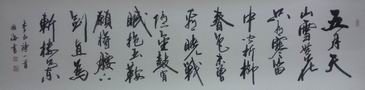 五月天
山雪無花
只有寒笛
中聞折柳
春色未曾
看曉戰
隨金鼓宵
眠抱玉鞍
願將腰下
劍直為
斬樓蘭
李白詩一首
書